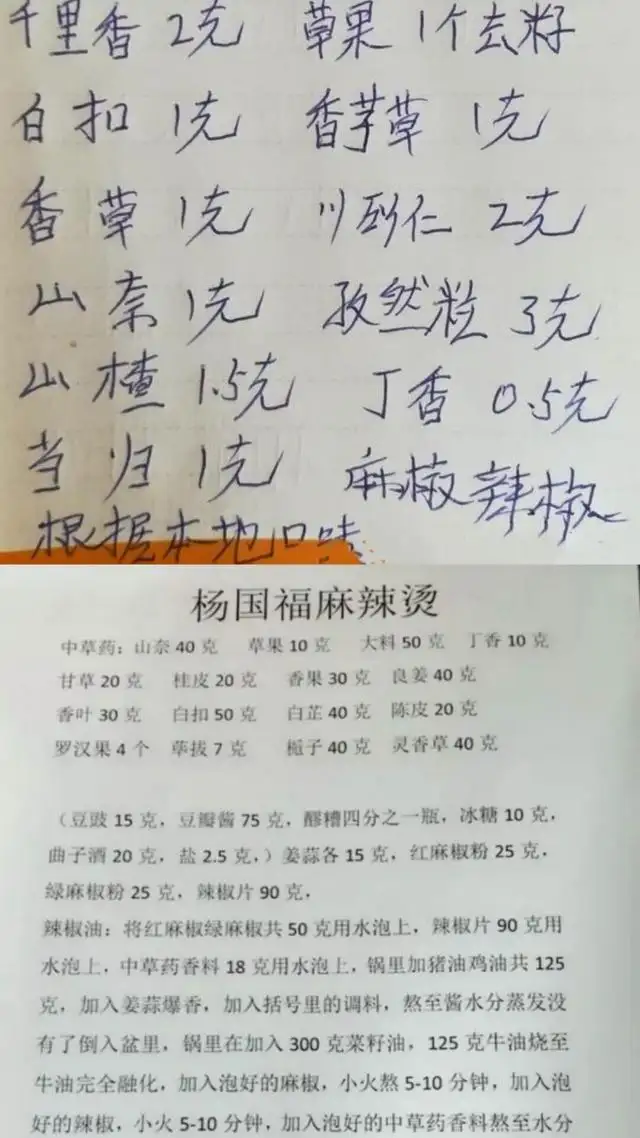 千里香 2克 草果 1个去籽
白扣 1克 香茅草 1克
香草 1克 川砂仁 2克
山奈 1克 孜然粒 3克
山楂 1.5克 丁香 0.5克
当归 1克 麻椒辣椒
根据本地口味
杨国福麻辣烫
中草药：山奈 40 克 草果 10 克 大料 50 克 丁香 10 克
甘草 20 克 桂皮 20 克 香果 30 克 良姜 40 克
香叶 30 克 白扣 50 克 白芷 40 克 陈皮 20 克
罗汉果 4 个 荜拔 7 克 栀子 40 克 灵香草 40 克
（豆豉 15 克，豆瓣酱 75 克，醪糟四分之一瓶，冰糖 10 克，
曲子酒 20 克，盐 2.5 克，）姜蒜各 15 克，红麻椒粉 25 克，
绿麻椒粉 25 克，辣椒片 90 克，
辣椒油：将红麻椒绿麻椒共 50 克用水泡上，辣椒片 90 克用
水泡上，中草药香料 18 克用水泡上，锅里加猪油鸡油共 125
克，加入姜蒜爆香，加入括号里的调料，熬至酱水分蒸发没
有了倒入盆里，锅里在加入 300 克菜籽油，125 克牛油烧至
牛油完全融化，加入泡好的麻椒，小火熬 5-10 分钟，加入泡
好的辣椒，小火 5-10 分钟，加入泡好的中草药香料熬至水分